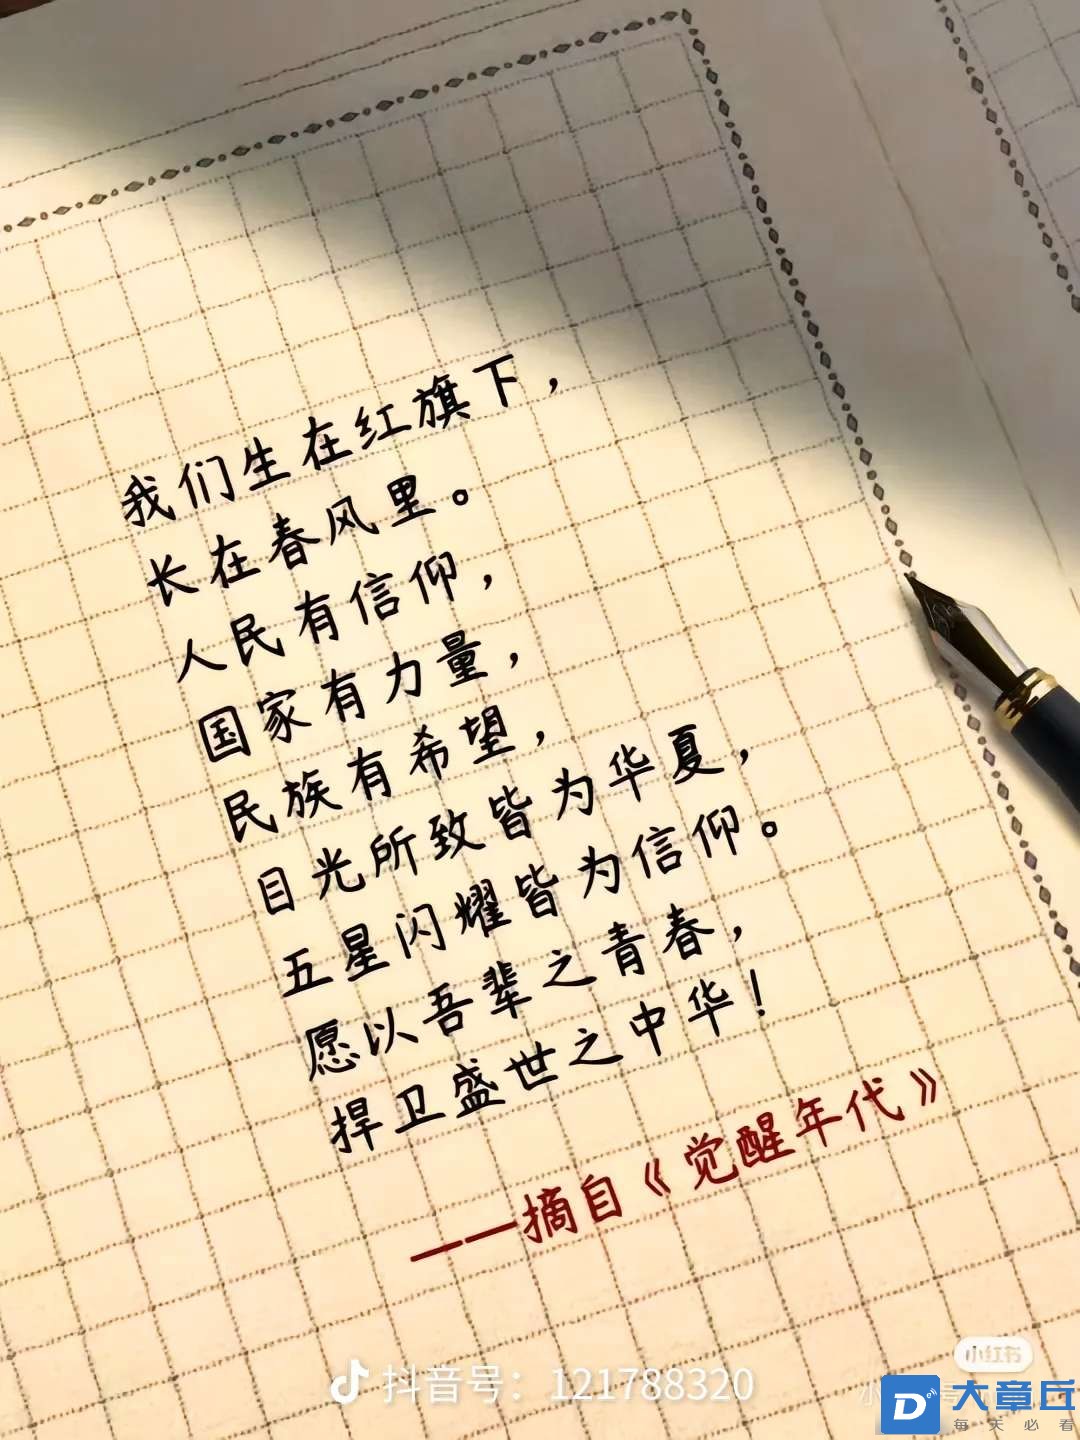 我们生在红旗下，
长在春风里。
人民有信仰，
国家有力量，
民族有希望，
目光所致皆为华夏，
五星闪耀皆为信仰。
愿以吾辈之青春，
捍卫盛世之中华！
——摘自《觉醒年代》
小红书
抖音号：121788320
大章丘
每天必看